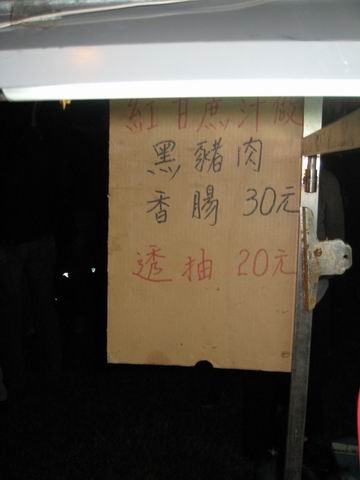 紅甘蔗汁做
黑豬肉
香腸 30元
透抽 20元